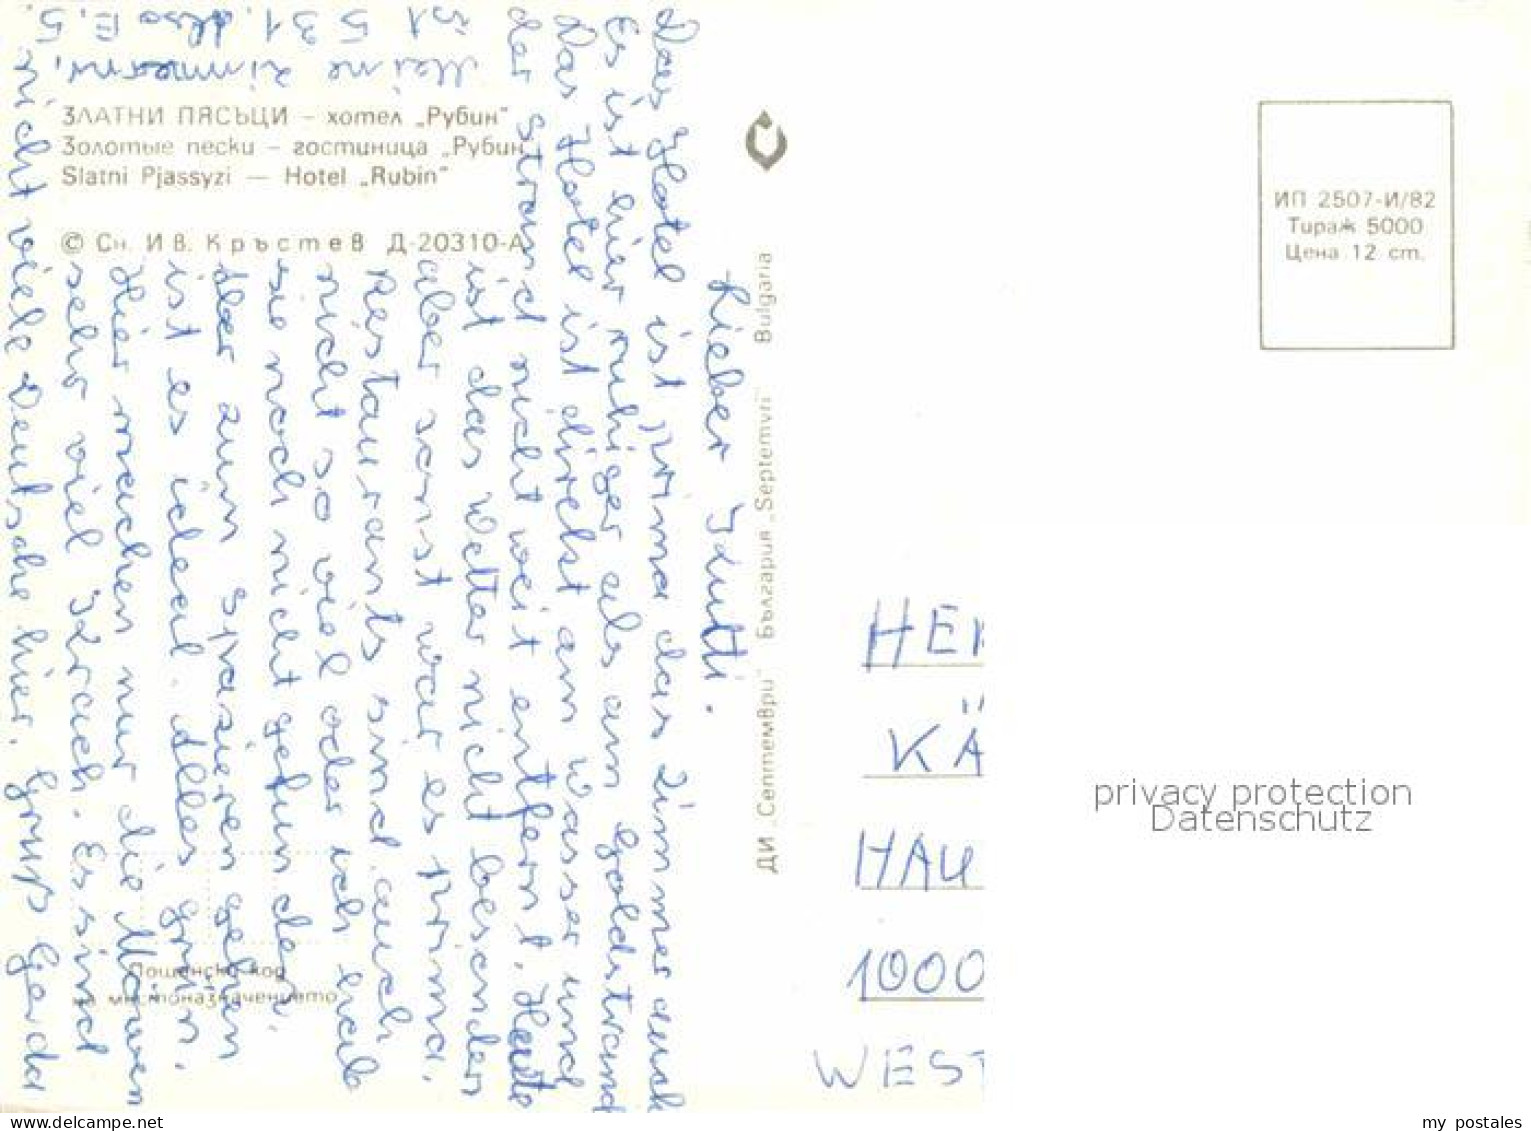 ЗЛАТНИ ПЯСЪЦИ – хотел „Рубин"
Золотые пески – гостиница „Рубин
Slatni Pjassyzi — Hotel „Rubin"
© Сн. Ив. Кръстев Д-20310-А
Lieber Kutti.
Das Hotel ist prima das Zimmer auch
Es ist hier ruhiger als am Goldstrand
Das Hotel ist direkt am Wasser und
der Strand nicht weit entfernt. Heute
ist das Wetter nicht besonders
aber sonst war es prima.
Restaurants sind auch
nicht so viel oder ich hab
sie noch nicht gefunden.
Aber zum spazieren gehen
ist es ideal. Alles grün.
Hier machen nur die Möwen
sehr viel Krach. Es sind
nicht viele Deutsche hier. Gruß Gerda
Meine Zimmernr,
ist 531. Also E, 5.
ДИ „Септември" България „Septemvri" Bulgaria
ИП 2507-И/82
Тираж 5000
Цена 12 ст.
Пощенски код
на местоназначението
HER
KÄ
HAU
1000
WEST
privacy protection
Datenschutz
oldthing.com
my postales